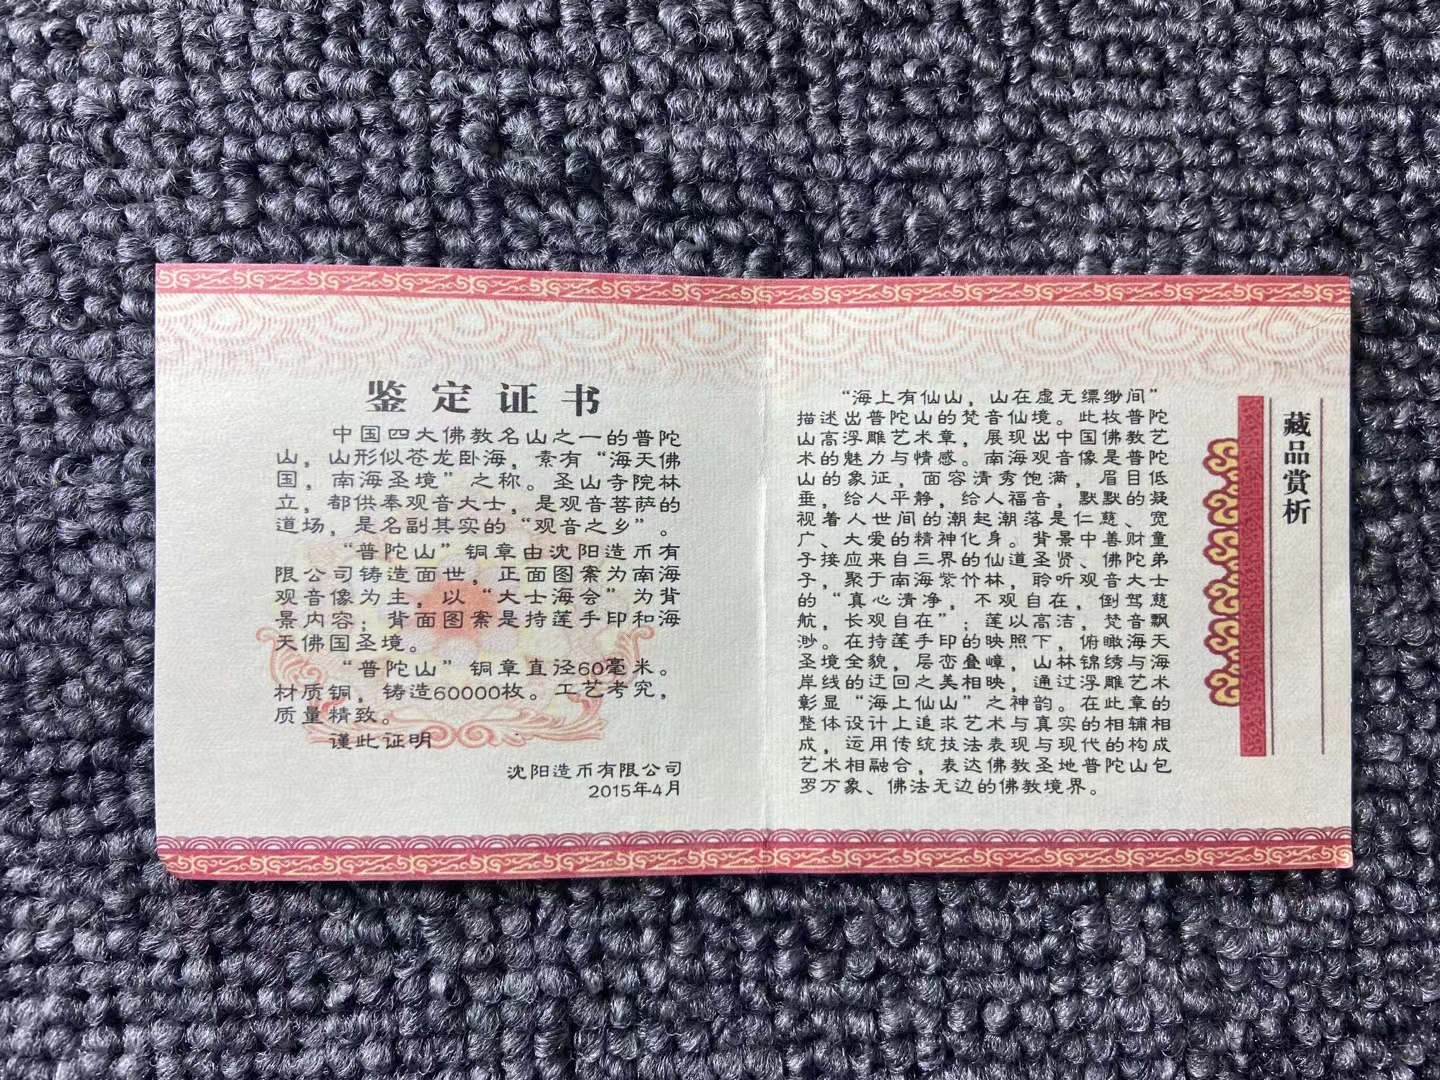 鉴定证书
中国四大佛教名山之一的普陀
山，山形似苍龙卧海，素有“海天佛
国，南海圣境”之称。圣山寺院林
立，都供奉观音大士，是观音菩萨的
道场，是名副其实的“观音之乡”。
“普陀山”铜章由沈阳造币有
限公司铸造面世，正面图案为南海
观音像为主，以“大士海会”为背
景内容；背面图案是持莲手印和海
天佛国圣境。
“普陀山”铜章直径60毫米。
材质铜，铸造60000枚。工艺考究，
质量精致。
谨此证明
沈阳造币有限公司
2015年4月
“海上有仙山，山在虚无缥缈间”
描述出普陀山的梵音仙境。此枚普陀
山高浮雕艺术章，展现出中国佛教艺
术的魅力与情感。南海观音像是普陀
山的象征，面容清秀饱满，眉目低
垂，给人平静，给人福音，默默的凝
视着人世间的潮起潮落是仁慈、宽
广、大爱的精神化身。背景中善财童
子接应来自三界的仙道圣贤、佛陀弟
子，聚于南海紫竹林，聆听观音大士
的“真心清净，不观自在，倒驾慈
航，长观自在”；莲以高洁，梵音飘
渺。在持莲手印的映照下，俯瞰海天
圣境全貌，层峦叠嶂，山林锦绣与海
岸线的迂回之美相映，通过浮雕艺术
彰显“海上仙山”之神韵。在此章的
整体设计上追求艺术与真实的相辅相
成，运用传统技法表现与现代的构成
艺术相融合，表达佛教圣地普陀山包
罗万象、佛法无边的佛教境界。
藏品赏析